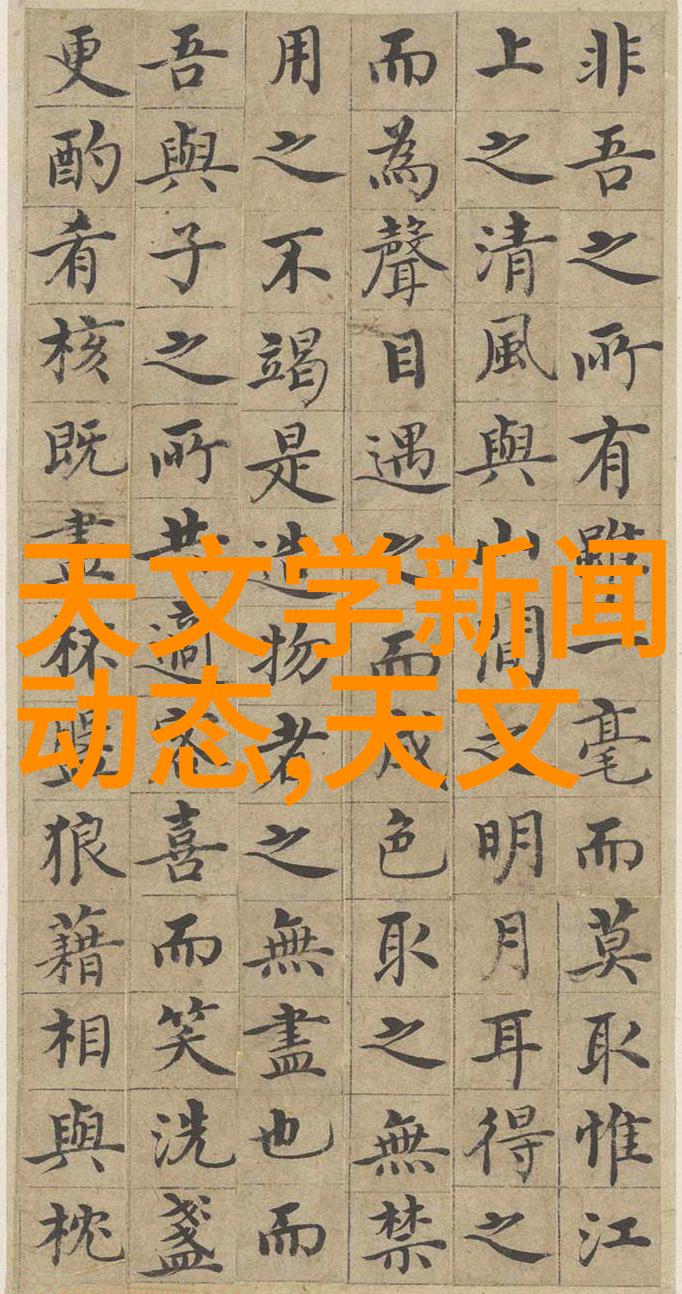 非吾之所有雖一毫而莫取惟江
上之清風與山間之明月耳得之
而為聲目遇之而成色取之無禁
用之不竭是造物者之無盡也而
吾與子之所共適客喜而笑洗盞
更酌肴核既盡杯盤狼藉相與枕
天文学新闻
动态,天文